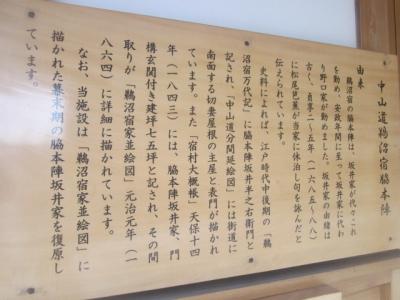 中山道鵜沼宿脇本陣
由来
鵜沼宿の脇本陣は、坂井家が代々これ
を勤め、安政年間に至って坂井家に代わ
り野口家が勤めました。坂井家の由緒は
古く、貞享二〜五年(一六八五〜八八)
に松尾芭蕉が当家に休泊し句を詠んだと
伝えられています。
史料によれば、江戸時代中後期の「鵜
沼宿万代記」に脇本陣坂井半之右衛門と
記され、「中山道分間延絵図」には街道に
南面する切妻屋根の主屋と表門が描かれ
ています。また「宿村大概帳」天保十四
年(一八四三)には、脇本陣坂井家、門
構玄関付き建坪七五坪と記され、その間
取りが「鵜沼宿家並絵図」元治元年(一
八六四)に詳細に描かれています。
なお、当施設は「鵜沼宿家並絵図」に
描かれた幕末期の脇本陣坂井家を復原し
ています。